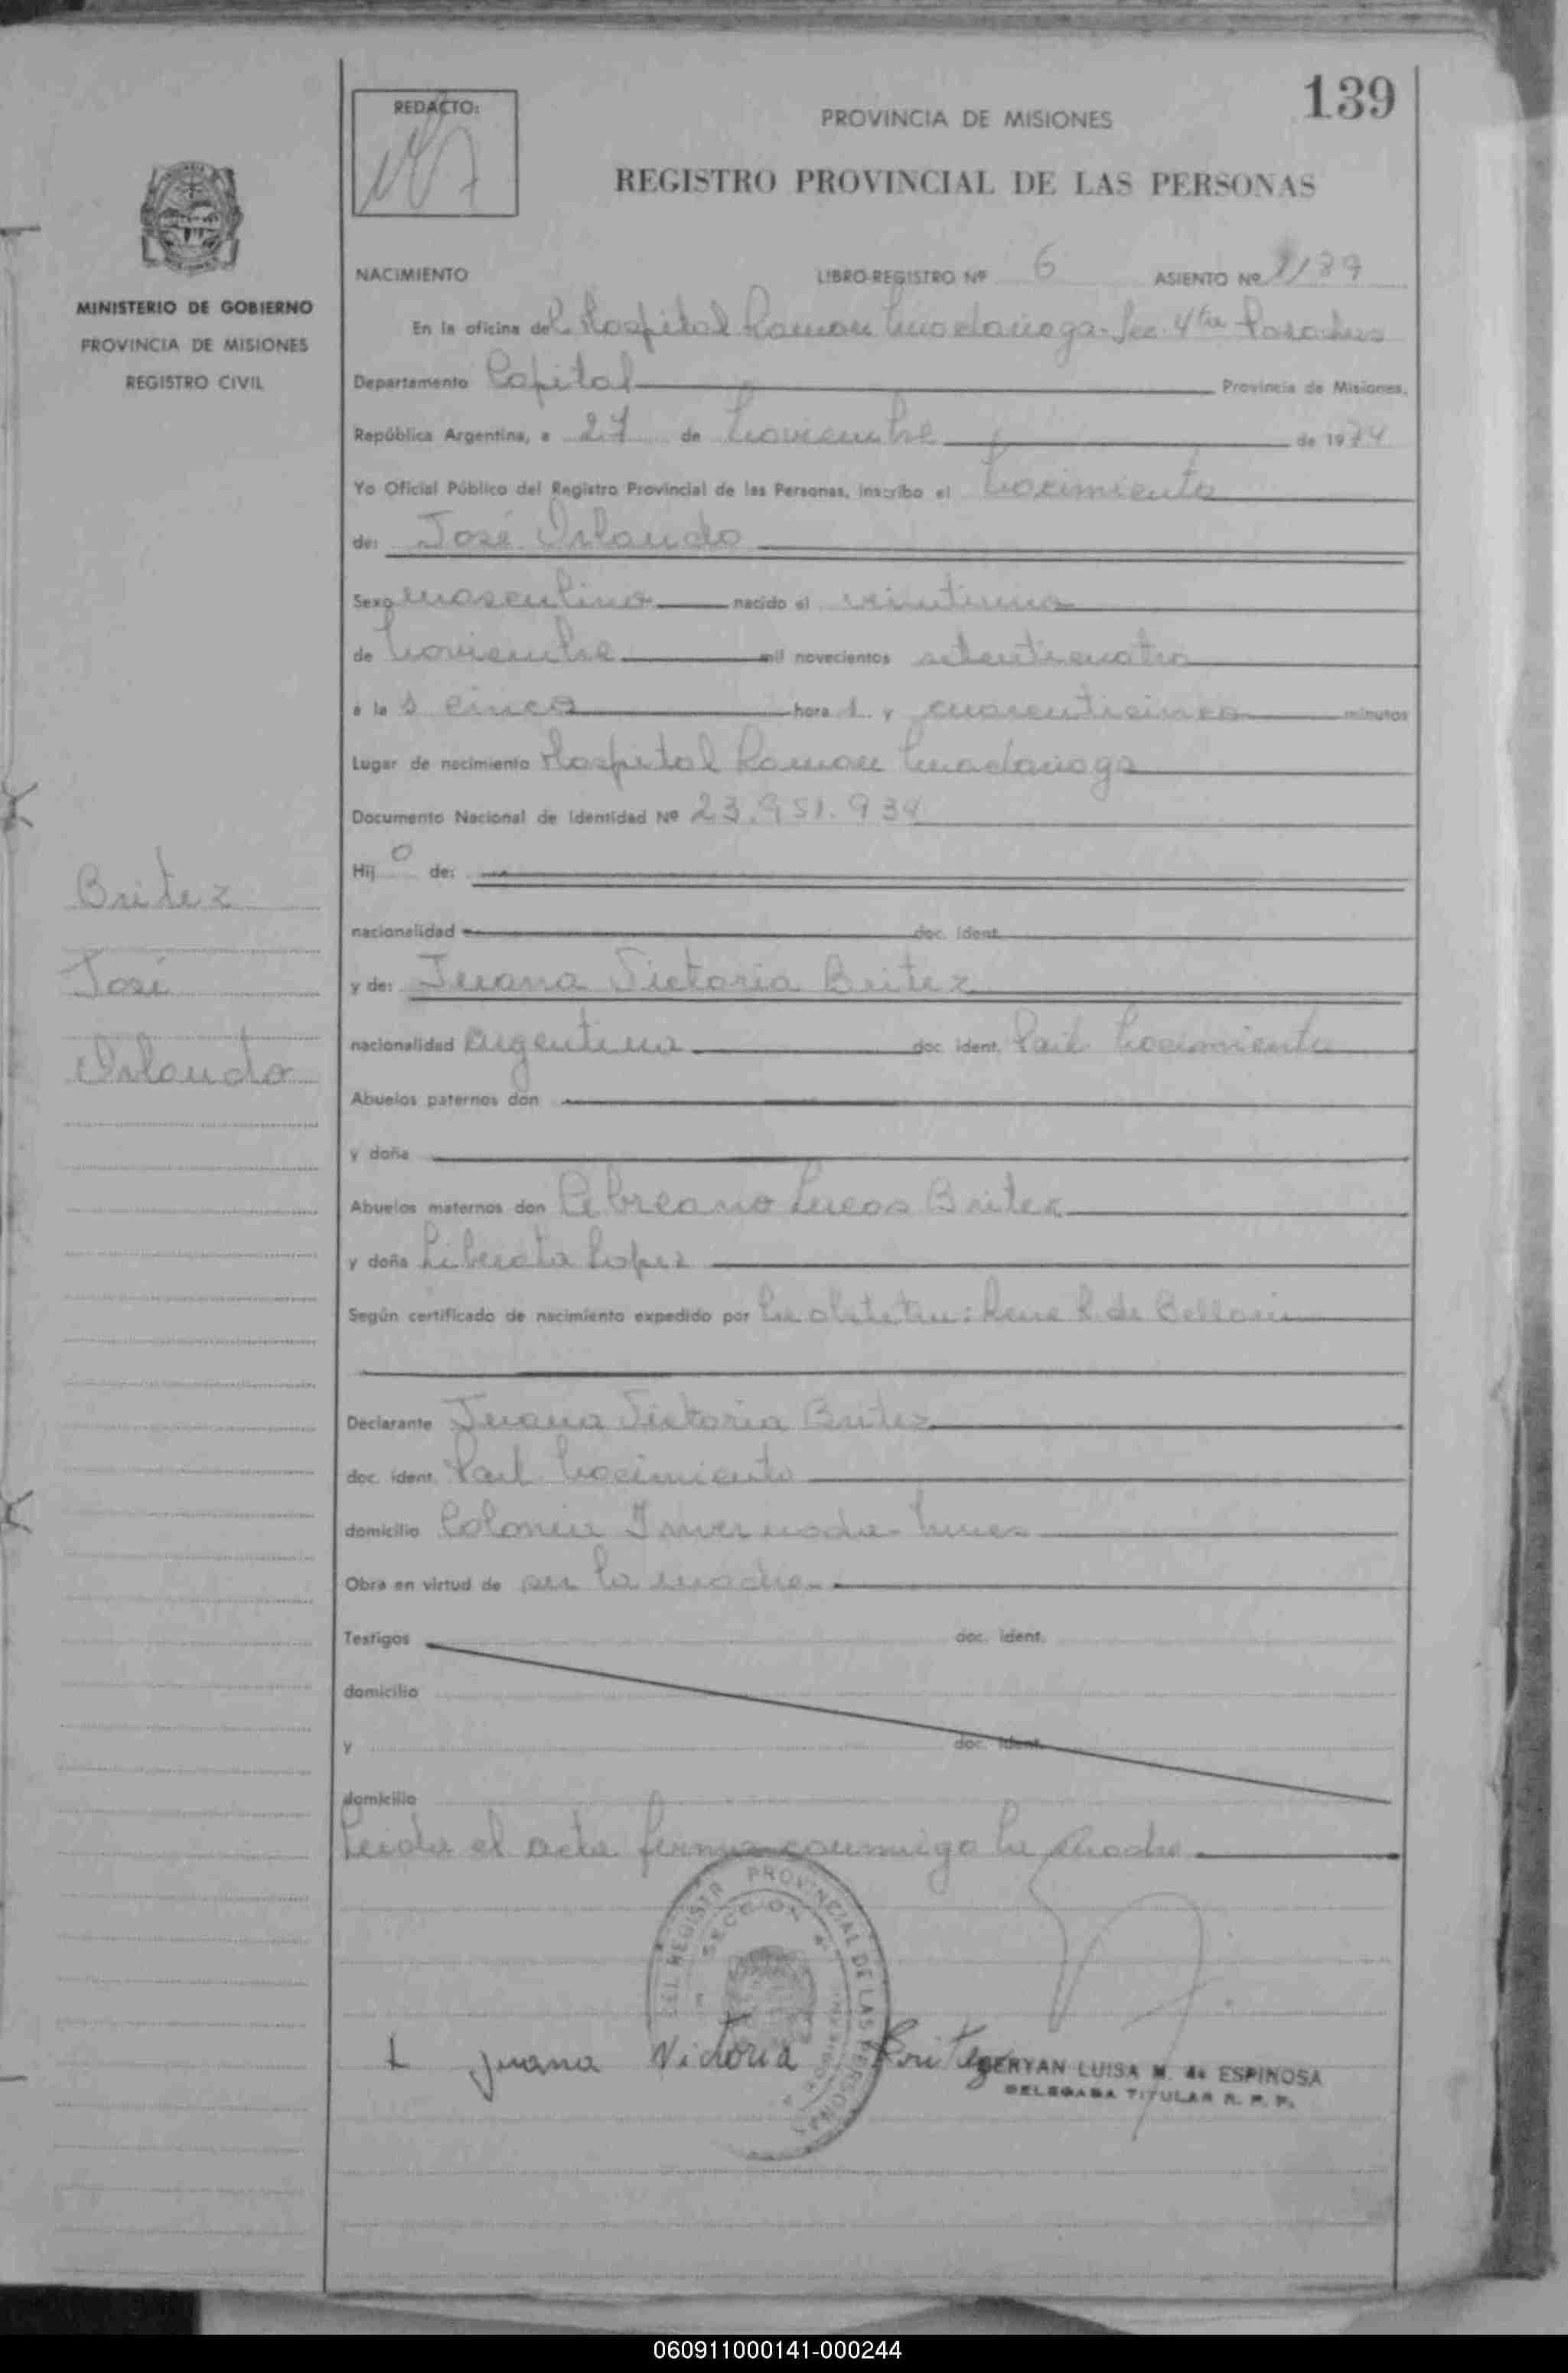 139
REDACTO:
PROVINCIA DE MISIONES
REGISTRO PROVINCIAL DE LAS PERSONAS
MINISTERIO DE GOBIERNO
PROVINCIA DE MISIONES
REGISTRO CIVIL
NACIMIENTO LIBRO-REGISTRO Nº 6 ASIENTO Nº
En la oficina del Hospital Ramon Madariaga - Sec. 4ta Posadas
Departamento Capital Provincia de Misiones,
República Argentina, a 27 de Noviembre de 1974
Yo Oficial Público del Registro Provincial de las Personas, inscribo el Nacimiento
de: José Orlando
Sexo masculino nacido el veintiuno
de Noviembre mil novecientos setenticuatro
a las cinco hora s y cuarenticinco minutos
Lugar de nacimiento Hospital Ramon Madariaga
Documento Nacional de Identidad Nº 23.951.934
Hijo de:
nacionalidad doc. ident.
y de: Juana Victoria Britez
nacionalidad argentina doc. ident. Part. Nacimiento
Abuelos paternos don
y doña
Abuelos maternos don Lucas Britez
y doña Liberata Lopez
Según certificado de nacimiento expedido por
Declarante Juana Victoria Britez
doc. ident. Part. Nacimiento
domicilio Colonia Invernada
Obra en virtud de ser la madre.
Testigos doc. ident.
domicilio
y doc. ident.
domicilio
Leida el acta firma conmigo la Madre
Britez
José
Orlando
DEL REGISTR PROVINCIAL DE LAS PERSONAS
SECCION 4
Juana Victoria Britez
LUISA M. de ESPINOSA
DELEGADA TITULAR R. P. P.
060911000141-000244